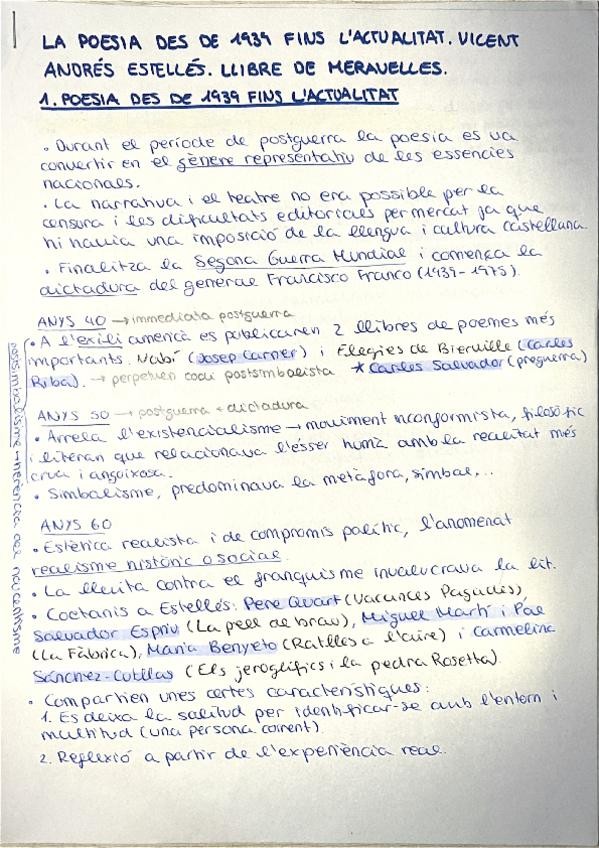 LA POESIA DES DE 1939 FINS L'ACTUALITAT. VICENT
ANDRÉS ESTELLÉS. LLIBRE DE MERAVELLES.
1. POESIA DES DE 1939 FINS L'ACTUALITAT
• Durant el període de postguerra la poesia es va
convertir en el gènere representatiu de les essències
nacionals.
• La narrativa i el teatre no era possible per la
censura i les dificultats editorials per mercat ja que
hi havia una imposició de la llengua i cultura castellana.
• Finalitza la Segona Guerra Mundial i comença la
dictadura del general Francisco Franco (1939-1975).
ANYS 40 → immediata postguerra
• A l'exili americà es publicaren 2 llibres de poemes més
importants. Nabí (Josep Carner) i Elegies de Bierville (Carles
Riba). → perpetuen codi postsimbolista * Carles Salvador (preguerra)
postsimbolisme → herència del noucentisme
ANYS 50 → postguerra + dictadura
• Arrela l'existencialisme → moviment inconformista, filosòfic
i literari que relacionava l'ésser humà amb la realitat més
crua i angoixosa.
• Simbolisme, predominava la metàfora, símbol,...
ANYS 60
• Estètica realista i de compromís polític, l'anomenat
realisme històric o social.
• La lluita contra el franquisme involucrava la lit.
• Coetanis a Estellés: Pere Quart (Vacances Pagades),
Salvador Espriu (La pell de brau), Miguel Martí i Pol
(La Fàbrica), Maria Benyeto (Ratlles a l'aire) i Carmelina
Sánchez-Cutillas (Els jeroglífics i la pedra Rosetta).
• Compartien unes certes característiques:
1. Es deixa la solitud per identificar-se amb l'entorn i
multitud (una persona corrent).
2. Reflexió a partir de l'experiència real.